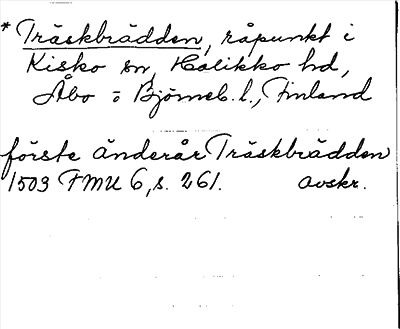 * Träskbrädden, råpunkt i
Kisko sn, Halikko hd,
Åbo o Björneb. l., Finland
förste änderår Träskbrädden
1503 FMU 6, s. 261. avskr.